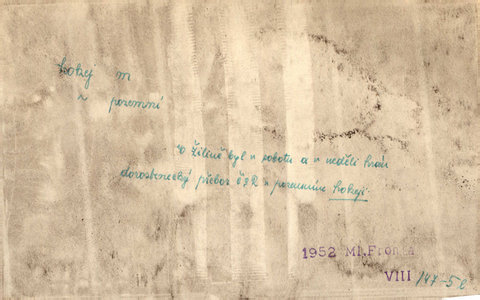 hokej m
pozemní
V Žilině byl v sobotu a v neděli hrán
dorostenecký přebor ČSR v pozemním hokeji.
1952 Ml. Fronta
VIII /147-5 e